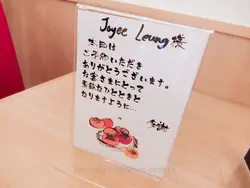 Joyee Leung 様
本日は
ご予約いただき
ありがとうございます。
お客さまにとって
素敵なひとときと
なりますように…
感謝